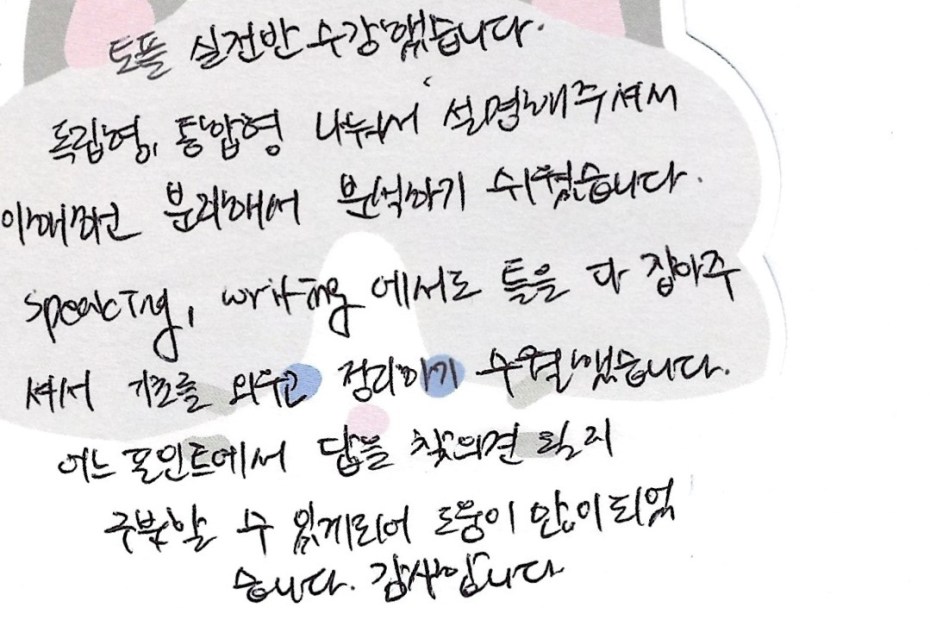 토플 실전반 수강했습니다.
독립형, 통합형 나눠서 설명해주셔서
분리해서 분석하기 쉬웠습니다.
speaking, writing 에서도 틀을 다 잡아주
셔서 기초를 외우고 정리하기 수월했습니다.
어느 포인트에서 답을 찾으면 될지
구분할 수 있게되어 도움이 많이 되었
습니다. 감사합니다